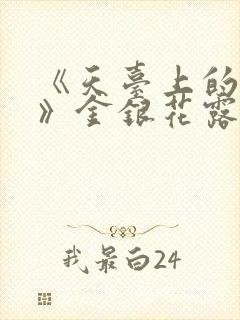 《天臺上的
》金銀花露
我最白24